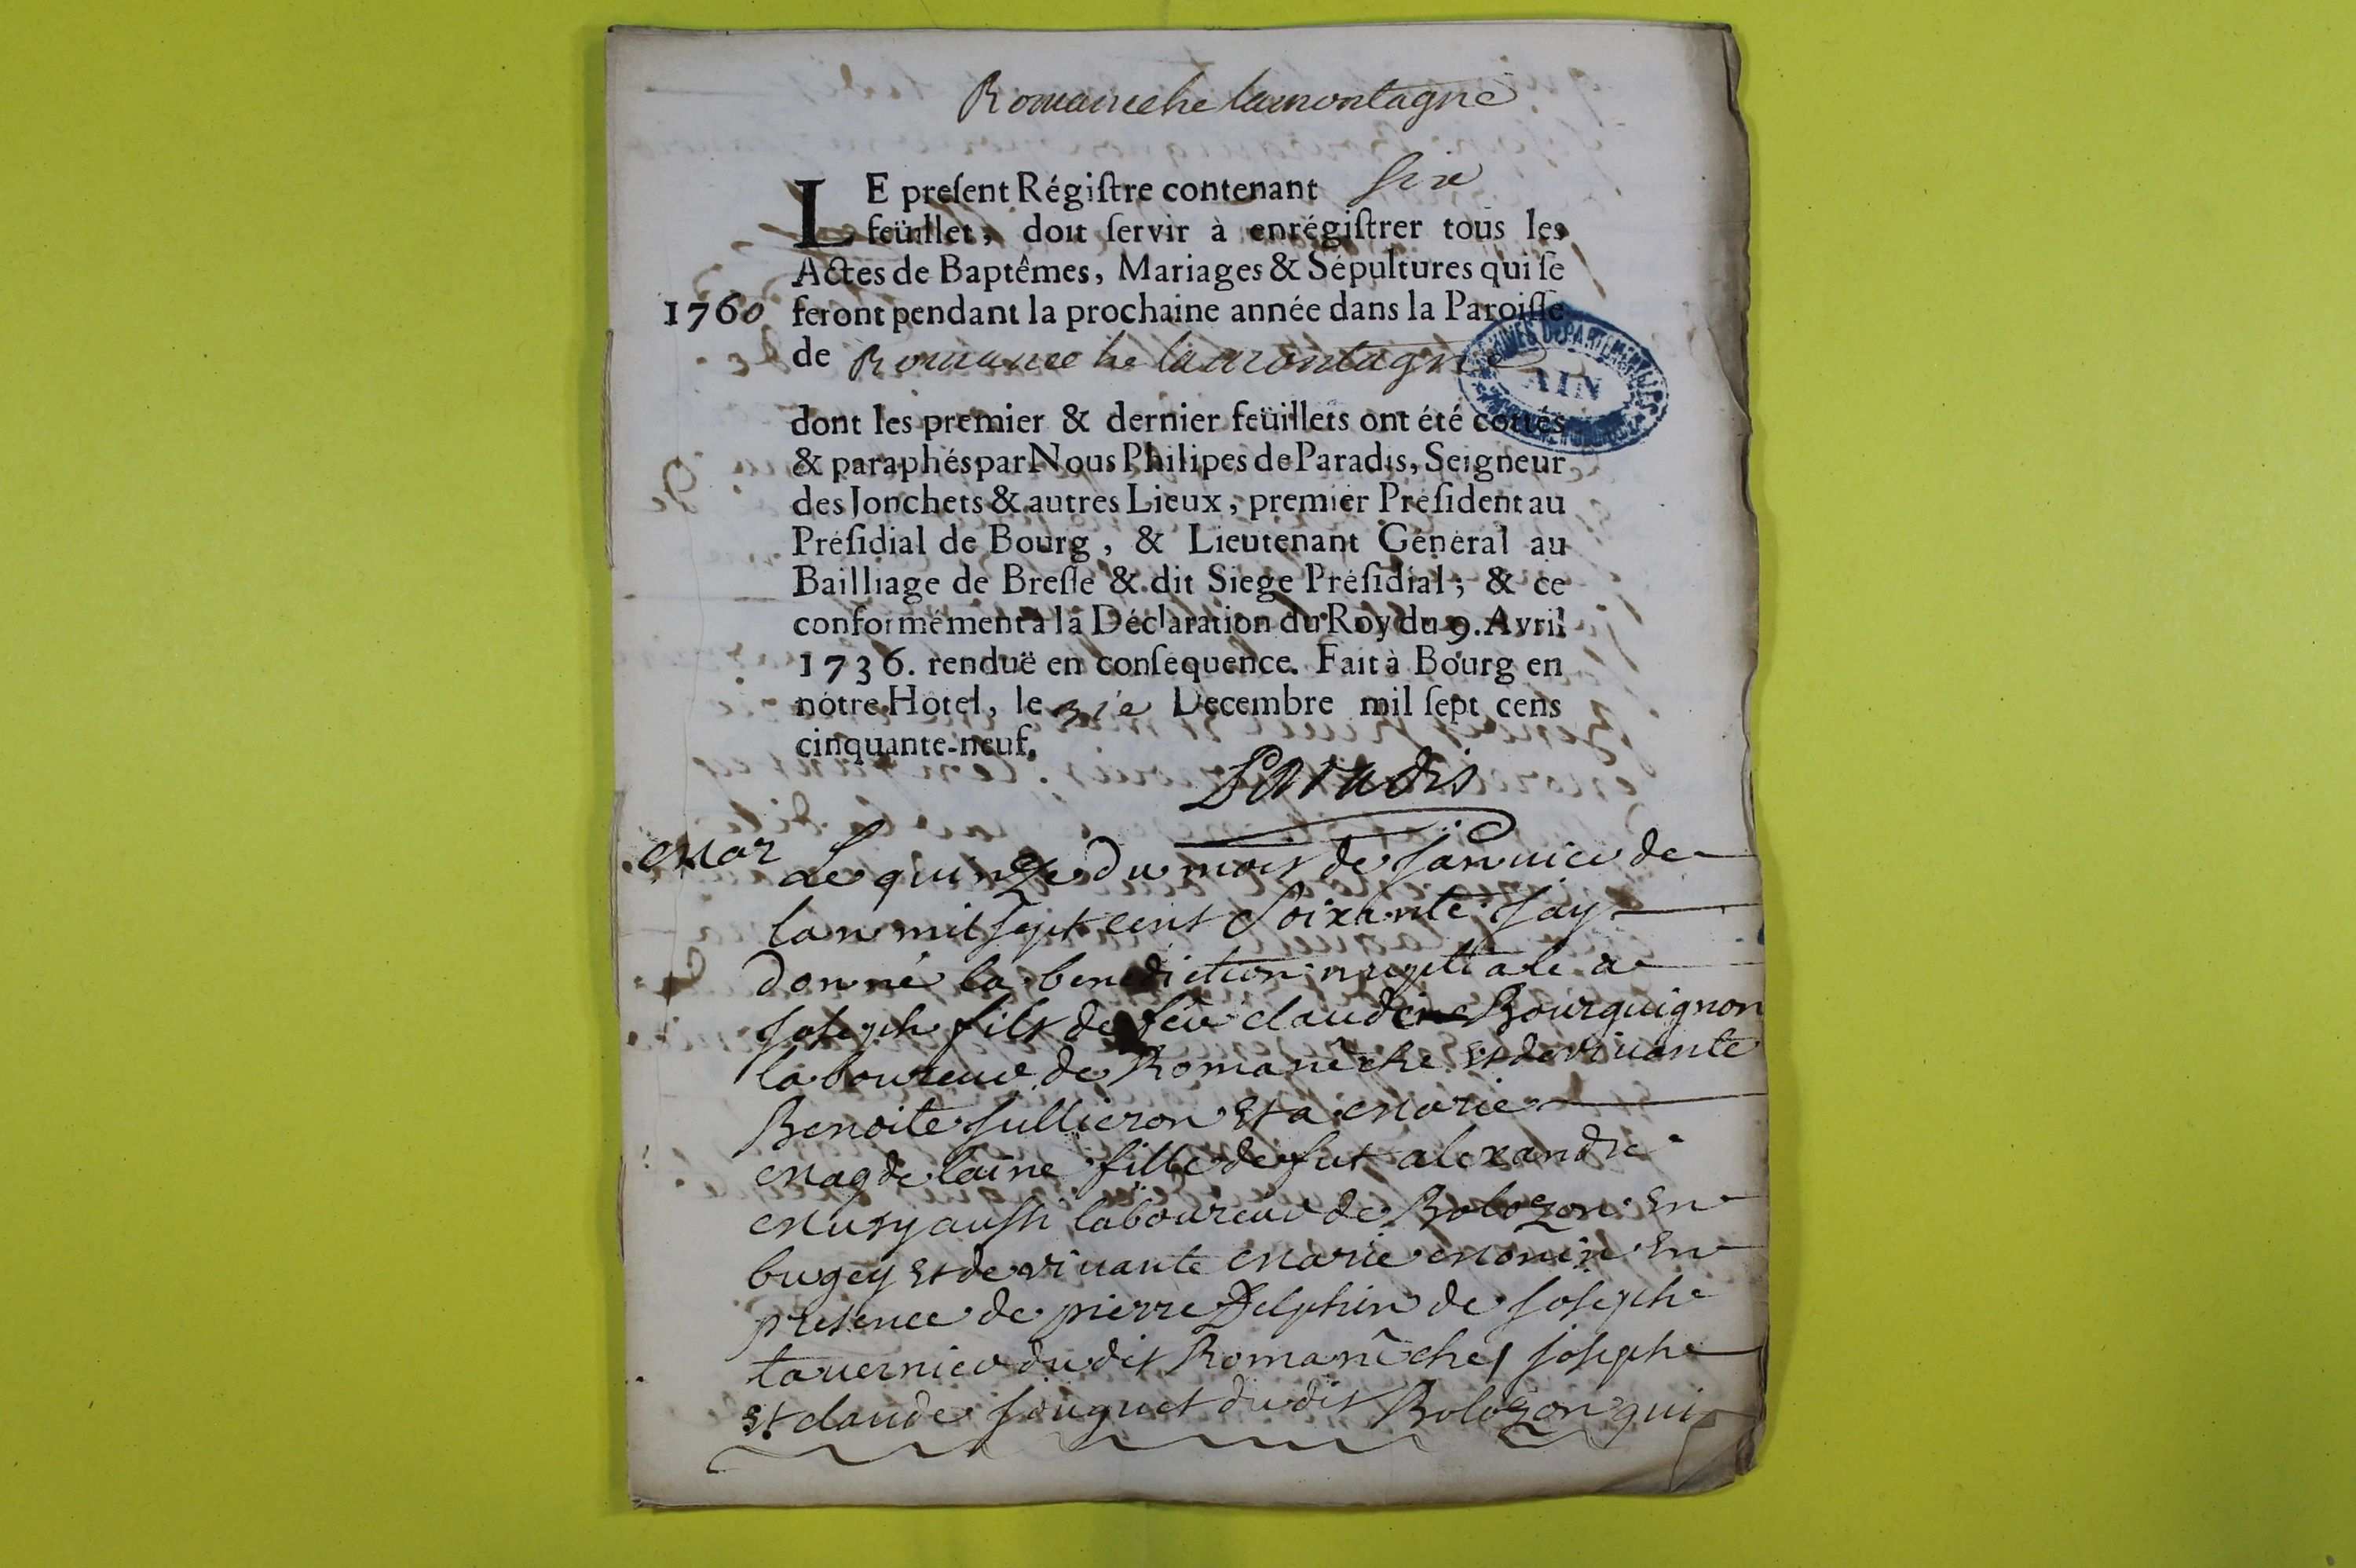 Romaneche lamontagne
LE preſent Régiſtre contenant six
feüillet, doit ſervir à enrégiſtrer tous les
Actes de Baptêmes, Mariages & Sépultures qui ſe
1760 feront pendant la prochaine année dans la Paroiſſe
de Romaneche lamontagne
ARCHIVES DÉPARTEMENTALES
AIN
dont les premier & dernier feüillets ont été cottés
& paraphés par Nous Philipes de Paradis, Seigneur
des Jonchets & autres Lieux, premier Préſident au
Préſidial de Bourg, & Lieutenant Général au
Bailliage de Breſſe & dit Siege Préſidial; & ce
conformément à la Déclaration du Roy du 9. Avril
1736. renduë en conſequence. Fait à Bourg en
nôtre Hôtel, le 31e Decembre mil ſept cens
cinquante-neuf.
Paradis
Mar Le quinze du mois de Janvier de
lan mil sept cent Soixante Jay
donné la benediction nuptiale a
Joseph fils de feu claude Bourguignon
laboureur de Romanêche et de vivante
Benoite Jullieron et a Marie
Magdelaine fille de fut alexandre
Mury aussi laboureur de Bolozon en
bugey et de vivante Marie Monin en
presence de pierre Delphin de Joseph
tavernier du dit Romanêche, Joseph
et claude Jouguet du dit Bolozon qui